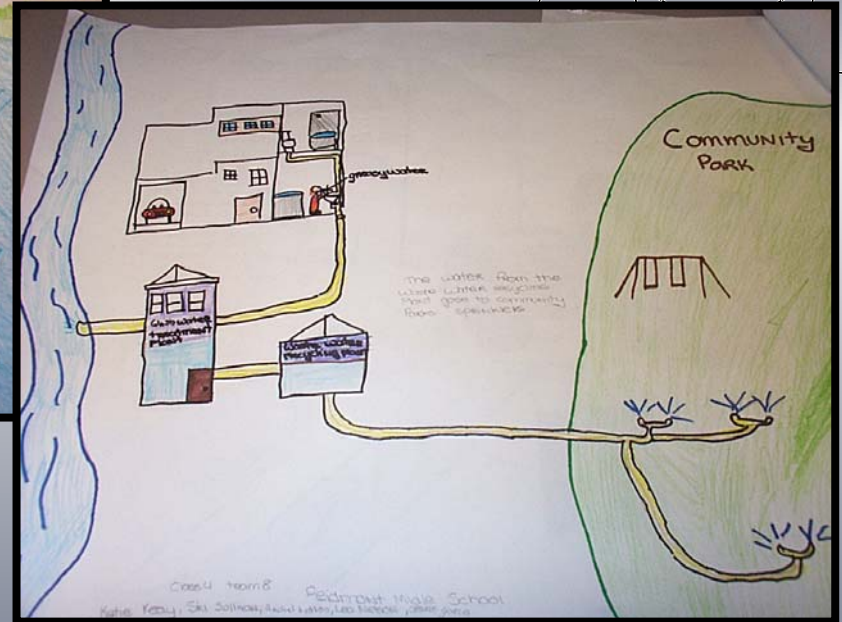 Community
Park
greay water
The water from the
waste water recycling
Plant goes to community
Parks sprinklers
Waste water
treatment
Plant
Waste water
recycling Plant
Class 4 team 8
Peidmont Midle School
Katie